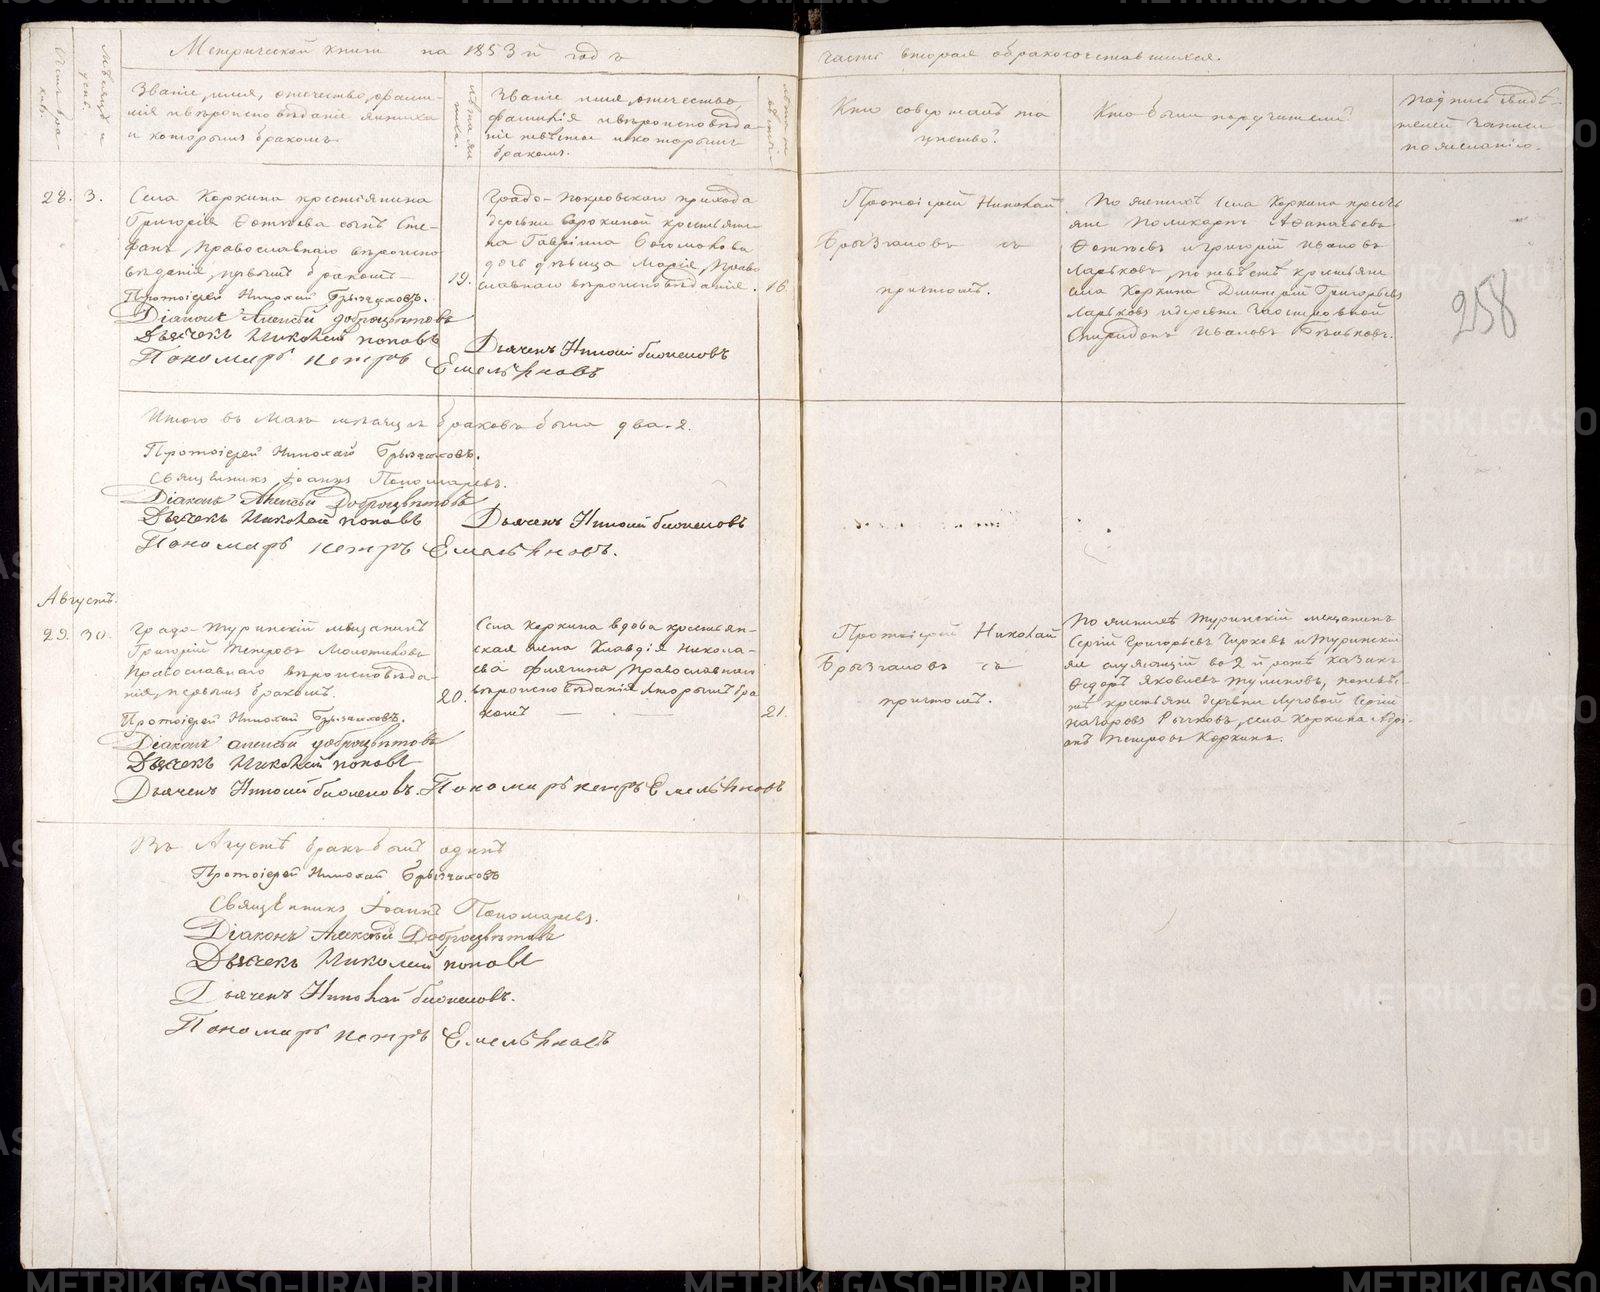 Метрической книги на 1853й годъ
часть вторая о бракосочетавшихся.
Звание, имя, отечество, фами-
лия и вероисповедание жениха
и которымъ бракомъ.
Звание имя, отечество,
фамилия и вероисповеда
ние невесты и которымъ
бракомъ.
Кто совершалъ та
инство?
Кто были поручители?
подпись свидѣ-
телей записи
по желанию.
28. 3.
Села Коркина крестьянина
Григорія Фотѣева сынъ Сте-
фанъ, Православнаго вѣроиспо
вѣданія, первымъ бракомъ
19.
Протоіерей Николай Брызгаловъ.
Діаконъ Алексѣй Доброцвѣтовъ
Дьячекъ Николай Поповъ
Пономарь Петръ Емельяновъ
Градо-Покровскаго прихода
деревни Сорокиной крестьяни-
на Гавріила Богомолова
дочь дѣвица Марія, Право
славнаго вѣроисповѣданія.
16.
Дьячекъ Николай
Протоіерей Николай
Брызгаловъ съ
причтомъ.
По женихѣ села Коркина кресть
яне Поликарпъ Афанасьевъ
Фотѣевъ и Григорій Ивановъ
Ларьковъ, по невѣстѣ крестьяне
села Коркина Димитрій Григорьевъ
Ларьковъ и деревни
Спиридонъ Ивановъ
258
Итого въ Маѣ мѣсяцѣ браковъ было два. 2.
Протоіерей Николай Брызгаловъ.
Священникъ Іоаннъ Пономаревъ.
Діаконъ Алексѣй Доброцвѣтовъ
Дьячекъ Николай Поповъ
Дьячекъ Николай
Пономарь Петръ Емельяновъ.
Августъ.
29. 30.
Градо-Туринскій мѣщанинъ
Григорій Петровъ Молотиловъ
Православнаго вѣроисповѣда-
нія, первымъ бракомъ.
20.
Протоіерей Николай Брызгаловъ.
Діаконъ Алексѣй Доброцвѣтовъ
Дьячекъ Николай Поповъ
Дьячекъ Николай
Пономарь Петръ Емельяновъ
Села Коркина вдова крестьян-
ская жена Клавдія Никола-
ева Православнаго
вѣроисповѣданія вторымъ бра
комъ
21.
Протоіерей Николай
Брызгаловъ съ
причтомъ.
По женихѣ Туринскій мѣщанинъ
Сергій Григорьевъ Чирковъ и Туринскій
же служащій во 2й ротѣ казакъ
Федоръ Яковлевъ по невѣс-
тѣ крестьяне деревни Луговой Сергій
Назаровъ Рычковъ, села Коркина
Петровъ Коркинъ.
Въ Августѣ бракъ былъ одинъ
Протоіерей Николай Брызгаловъ
Священникъ Іоаннъ Пономаревъ.
Діаконъ Алексѣй Доброцвѣтовъ
Дьячекъ Николай Поповъ
Дьячекъ Николай
Пономарь Петръ Емельяновъ
METRIKI.GASO-URAL.RU